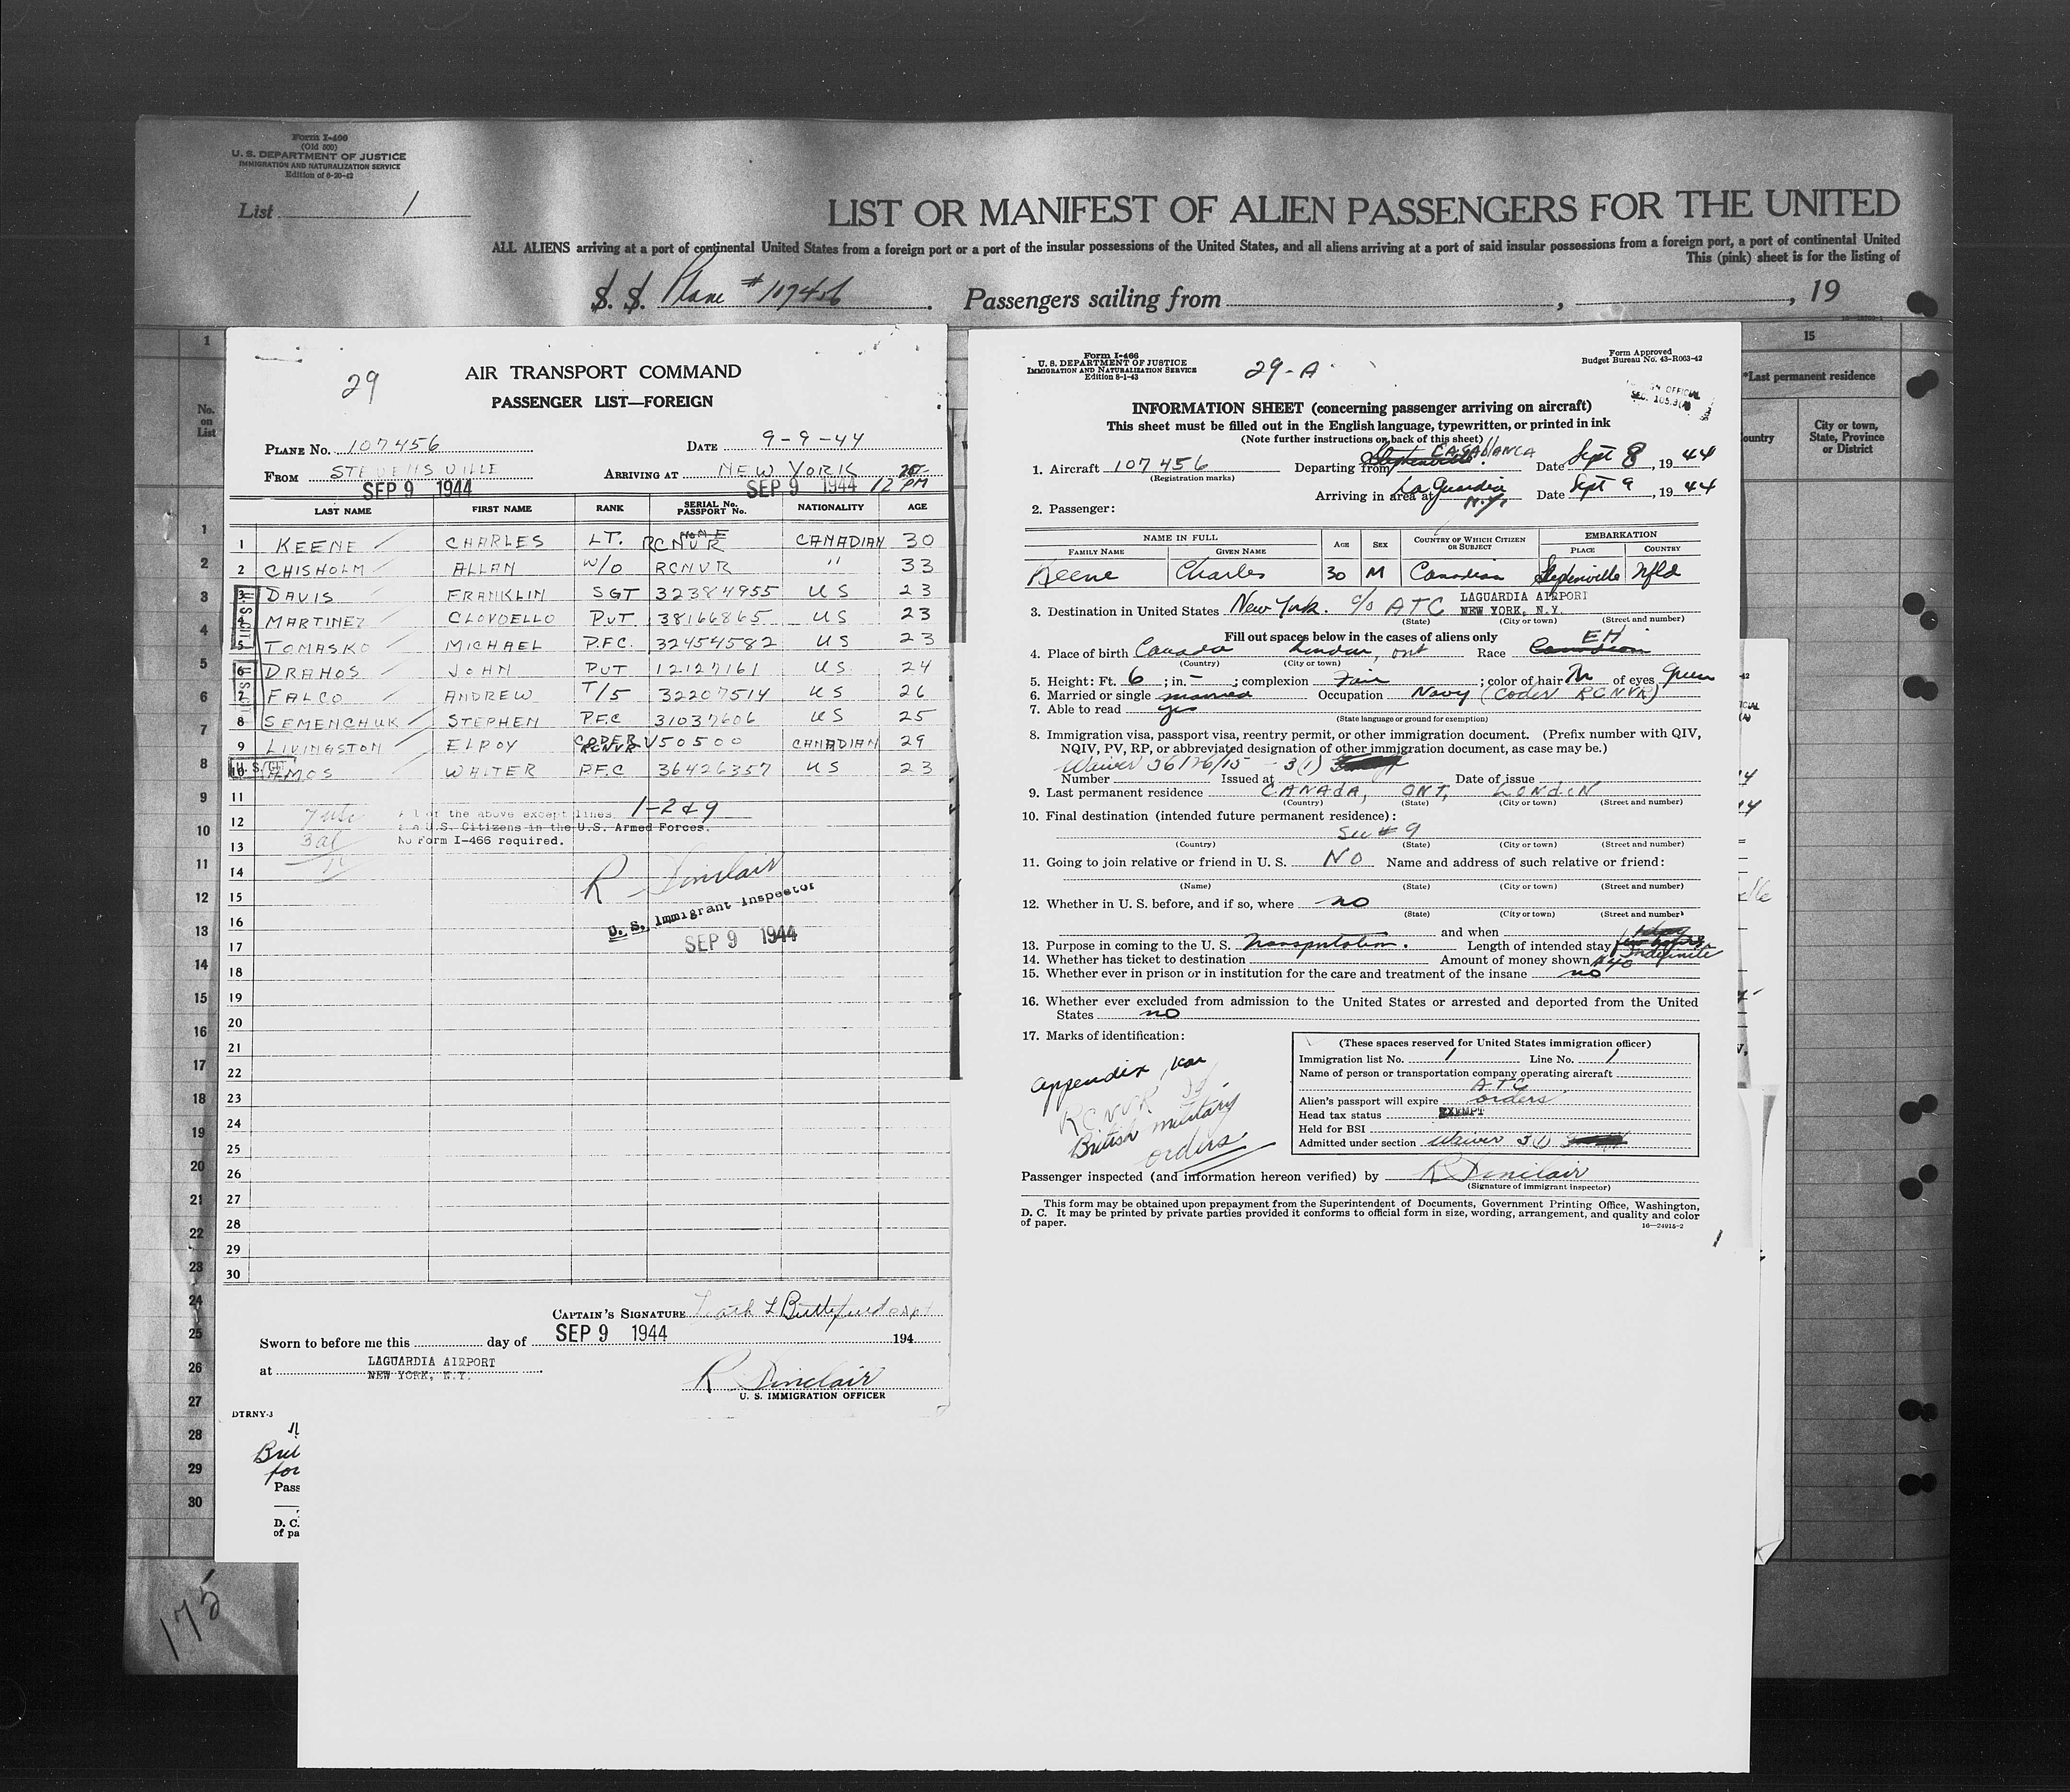 Form I-400
(Old 500)
U. S. DEPARTMENT OF JUSTICE
IMMIGRATION AND NATURALIZATION SERVICE
Edition of 6-20-42
List 1
LIST OR MANIFEST OF ALIEN PASSENGERS FOR THE UNITED
ALL ALIENS arriving at a port of continental United States from a foreign port or a port of the insular possessions of the United States, and all aliens arriving at a port of said insular possessions from a foreign port, a port of continental United
This (pink) sheet is for the listing of
S. S. Plane # 107456 . Passengers sailing from , , 19
29
AIR TRANSPORT COMMAND
PASSENGER LIST—FOREIGN
PLANE NO. 107456 DATE 9-9-44
FROM STEVENSVILLE ARRIVING AT NEW YORK
SEP 9 1944 SEP 9 1944 12 PM
LAST NAME FIRST NAME RANK SERIAL No. PASSPORT No. NATIONALITY AGE
1 KEENE CHARLES LT. RCNVR CANADIAN 30
2 CHISHOLM ALLAN W/O RCNVR " 33
3 DAVIS FRANKLIN SGT 32384955 US 23
4 MARTINEZ CLOVOELLO PVT 38166865 US 23
5 TOMASKO MICHAEL P.F.C. 32454582 US 23
6 DRAHOS JOHN PVT 12127161 US 24
7 FALCO ANDREW T/5 32207514 US 26
8 SEMENCHUK STEPHEN P.F.C 31037606 US 25
9 LIVINGSTON ELROY CODER RCNVR V50500 CANADIAN 29
10 ALMOS WALTER P.F.C 36426357 US 23
11
12
13
14
15
16
17
18
19
20
21
22
23
24
25
26
27
28
29
30
All of the above except lines 1-2 & 9
are U.S. Citizens in the U.S. Armed Forces.
No Form I-466 required.
R Sinclair
U. S. Immigrant Inspector
SEP 9 1944
CAPTAIN'S SIGNATURE
Sworn to before me this day of SEP 9 1944 194
at LAGUARDIA AIRPORT
NEW YORK, N.Y.
R Sinclair
U. S. IMMIGRATION OFFICER
DTRNY-3
Pass
D. C.
of pa
175
Form I-466
U. S. DEPARTMENT OF JUSTICE
IMMIGRATION AND NATURALIZATION SERVICE
Edition 8-1-43
29-A
Form Approved
Budget Bureau No. 43-R063-42
INFORMATION SHEET (concerning passenger arriving on aircraft)
This sheet must be filled out in the English language, typewritten, or printed in ink
(Note further instructions on back of this sheet)
1. Aircraft 107456 Departing from Stephenville CASABLANCA Date Sept 8, 1944
(Registration marks)
Arriving in area at La Guardia N.Y. Date Sept 9, 1944
2. Passenger:
NAME IN FULL AGE SEX COUNTRY OF WHICH CITIZEN OR SUBJECT EMBARKATION
FAMILY NAME GIVEN NAME PLACE COUNTRY
Keene Charles 30 M Canadian Stephenville Nfld
3. Destination in United States New York. c/o ATC LAGUARDIA AIRPORT NEW YORK, N.Y.
(State) (City or town) (Street and number)
Fill out spaces below in the cases of aliens only
4. Place of birth Canada London, Ont Race Canadian EH
(Country) (City or town)
5. Height: Ft. 6 ; in. - ; complexion Fair ; color of hair Br of eyes green
6. Married or single married Occupation Navy (Coder RCNVR)
7. Able to read yes
(State language or ground for exemption)
8. Immigration visa, passport visa, reentry permit, or other immigration document. (Prefix number with QIV,
NQIV, PV, RP, or abbreviated designation of other immigration document, as case may be.)
Waiver 36126/15 - 3(1)
Number Issued at Date of issue
9. Last permanent residence CANADA, ONT, LONDON
(Country) (State) (City or town) (Street and number)
10. Final destination (intended future permanent residence):
See # 9
(Country) (State) (City or town) (Street and number)
11. Going to join relative or friend in U. S. NO Name and address of such relative or friend:
(Name) (State) (City or town) (Street and number)
12. Whether in U. S. before, and if so, where no
(State) (City or town) (Street and number)
and when
13. Purpose in coming to the U. S. Transportation. Length of intended stay indefinite
14. Whether has ticket to destination Amount of money shown $40
15. Whether ever in prison or in institution for the care and treatment of the insane no
16. Whether ever excluded from admission to the United States or arrested and deported from the United
States no
17. Marks of identification:
appendix scar
RCNVR
British military
orders
(These spaces reserved for United States immigration officer)
Immigration list No. 1 Line No. 1
Name of person or transportation company operating aircraft
ATC
Alien's passport will expire orders
Head tax status EXEMPT
Held for BSI
Admitted under section Waiver 3(1)
Passenger inspected (and information hereon verified) by R Sinclair
(Signature of immigrant inspector)
This form may be obtained upon prepayment from the Superintendent of Documents, Government Printing Office, Washington,
D. C. It may be printed by private parties provided it conforms to official form in size, wording, arrangement, and quality and color
of paper.
16—24915-2
15
*Last permanent residence
City or town,
State, Province
or District
No.
on
List